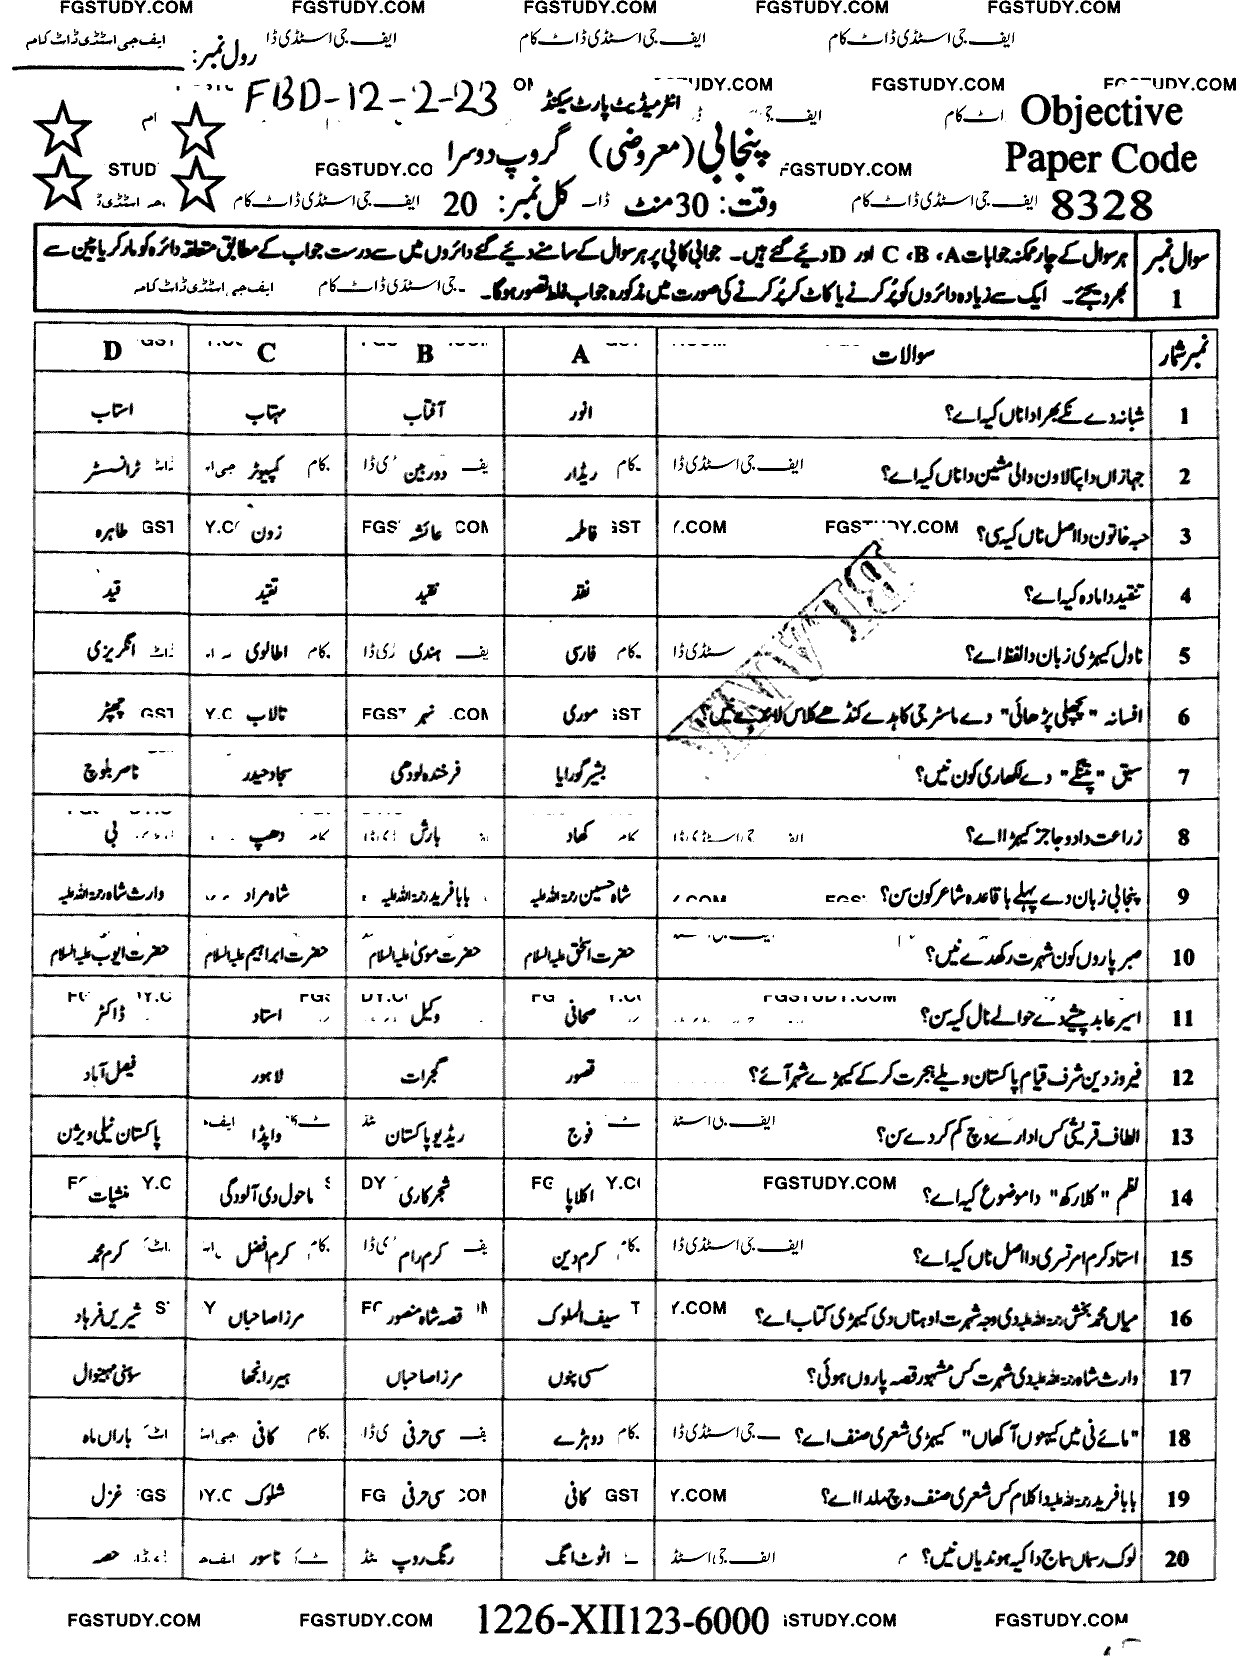 FGSTUDY.COM FGSTUDY.COM FGSTUDY.COM FGSTUDY.COM FGSTUDY.COM
ایف جی اسٹڈی ڈاٹ کام ایف جی اسٹڈی ڈا ایف جی اسٹڈی ڈاٹ کام ایف جی اسٹڈی ڈاٹ کام
رول نمبر:
FBD-12-2-23 انٹرمیڈیٹ پارٹ سیکنڈ FGSTUDY.COM
Objective
Paper Code
8328
پنجابی (معروضی) گروپ دوسرا
وقت: 30 منٹ کل نمبر: 20
سوال نمبر 1 ہر سوال کے چار ممکنہ جوابات A، B، C اور D دیئے گئے ہیں۔ جوابی کاپی پر ہر سوال کے سامنے دیئے گئے دائروں میں سے درست جواب کے مطابق متعلقہ دائرہ کو مارکر یا پین سے
بھر دیجئے۔ ایک سے زیادہ دائروں کو پُر کرنے یا کاٹ کر پُر کرنے کی صورت میں مذکورہ جواب غلط تصور ہوگا۔
نمبر شمار سوالات A B C D
1 شبانہ دے نکے بھرا دا ناں کیہ اے؟ انور آفتاب مہتاب استاب
2 جہازاں دا پتا لاون والی مشین دا ناں کیہ اے؟ ریڈار دوربین کمپیوٹر ٹرانسسٹر
3 حبہ خاتون دا اصل ناں کیہ سی؟ فاطمہ عائشہ زون طاہرہ
4 تنقید دا مادہ کیہ اے؟ نقد نقید تقید قید
5 ناول کیہڑی زبان دا لفظ اے؟ فارسی ہندی اطالوی انگریزی
6 افسانہ "پچھلی پڑھائی" دے ماسٹر جی کاہدے کنڈھے کلاس لاندے نیں؟ موری نہر تالاب چھپڑ
7 سبق "پتنگے" دے لکھاری کون نیں؟ بشیر گورایا فرخندہ لودھی سجاد حیدر ناصر بلوچ
8 زراعت دا دوجا جز کیہڑا اے؟ کھاد بارش دھپ بی
9 پنجابی زبان دے پہلے باقاعدہ شاعر کون سن؟ شاہ حسین رحمۃ اللہ علیہ بابا فرید رحمۃ اللہ علیہ شاہ مراد وارث شاہ رحمۃ اللہ علیہ
10 صبر پاروں کون شہرت رکھدے نیں؟ حضرت اسحٰق علیہ السلام حضرت موسیٰ علیہ السلام حضرت ابراہیم علیہ السلام حضرت ایوب علیہ السلام
11 اسیر عابد پیشے دے حوالے نال کیہ سن؟ صحافی وکیل استاد ڈاکٹر
12 فیروز دین شرف قیام پاکستان ویلے ہجرت کر کے کیہڑے شہر آئے؟ قصور گجرات لاہور فیصل آباد
13 الطاف قریشی کس ادارے وچ کم کردے سن؟ فوج ریڈیو پاکستان واپڈا پاکستان ٹیلی ویژن
14 نظم "کلا رکھ" دا موضوع کیہ اے؟ اکلاپا شجرکاری ماحول دی آلودگی منشیات
15 استاد کرم امرتسری دا اصل ناں کیہ اے؟ کرم دین کرم رام کرم افضل کرم محمد
16 میاں محمد بخش رحمۃ اللہ علیہ دی وجہ شہرت اوہناں دی کیہڑی کتاب اے؟ سیف الملوک قصہ شاہ منصور مرزا صاحباں شیریں فرہاد
17 وارث شاہ رحمۃ اللہ علیہ دی شہرت کس مشہور قصہ پاروں ہوئی؟ سسی پنوں مرزا صاحباں ہیر رانجھا سوہنی مہینوال
18 "مائے نی میں کیہنوں آکھاں" کیہڑی شعری صنف اے؟ دوہڑے سی حرفی کافی باراں ماہ
19 بابا فرید رحمۃ اللہ علیہ دا کلام کس شعری صنف وچ ملدا اے؟ کافی سی حرفی شلوک غزل
20 لوک رساں سماج دا کیہ ہوندیاں نیں؟ انوٹ انگ رنگ روپ ناسور حصہ
FGSTUDY.COM FGSTUDY.COM 1226-XII123-6000 FGSTUDY.COM